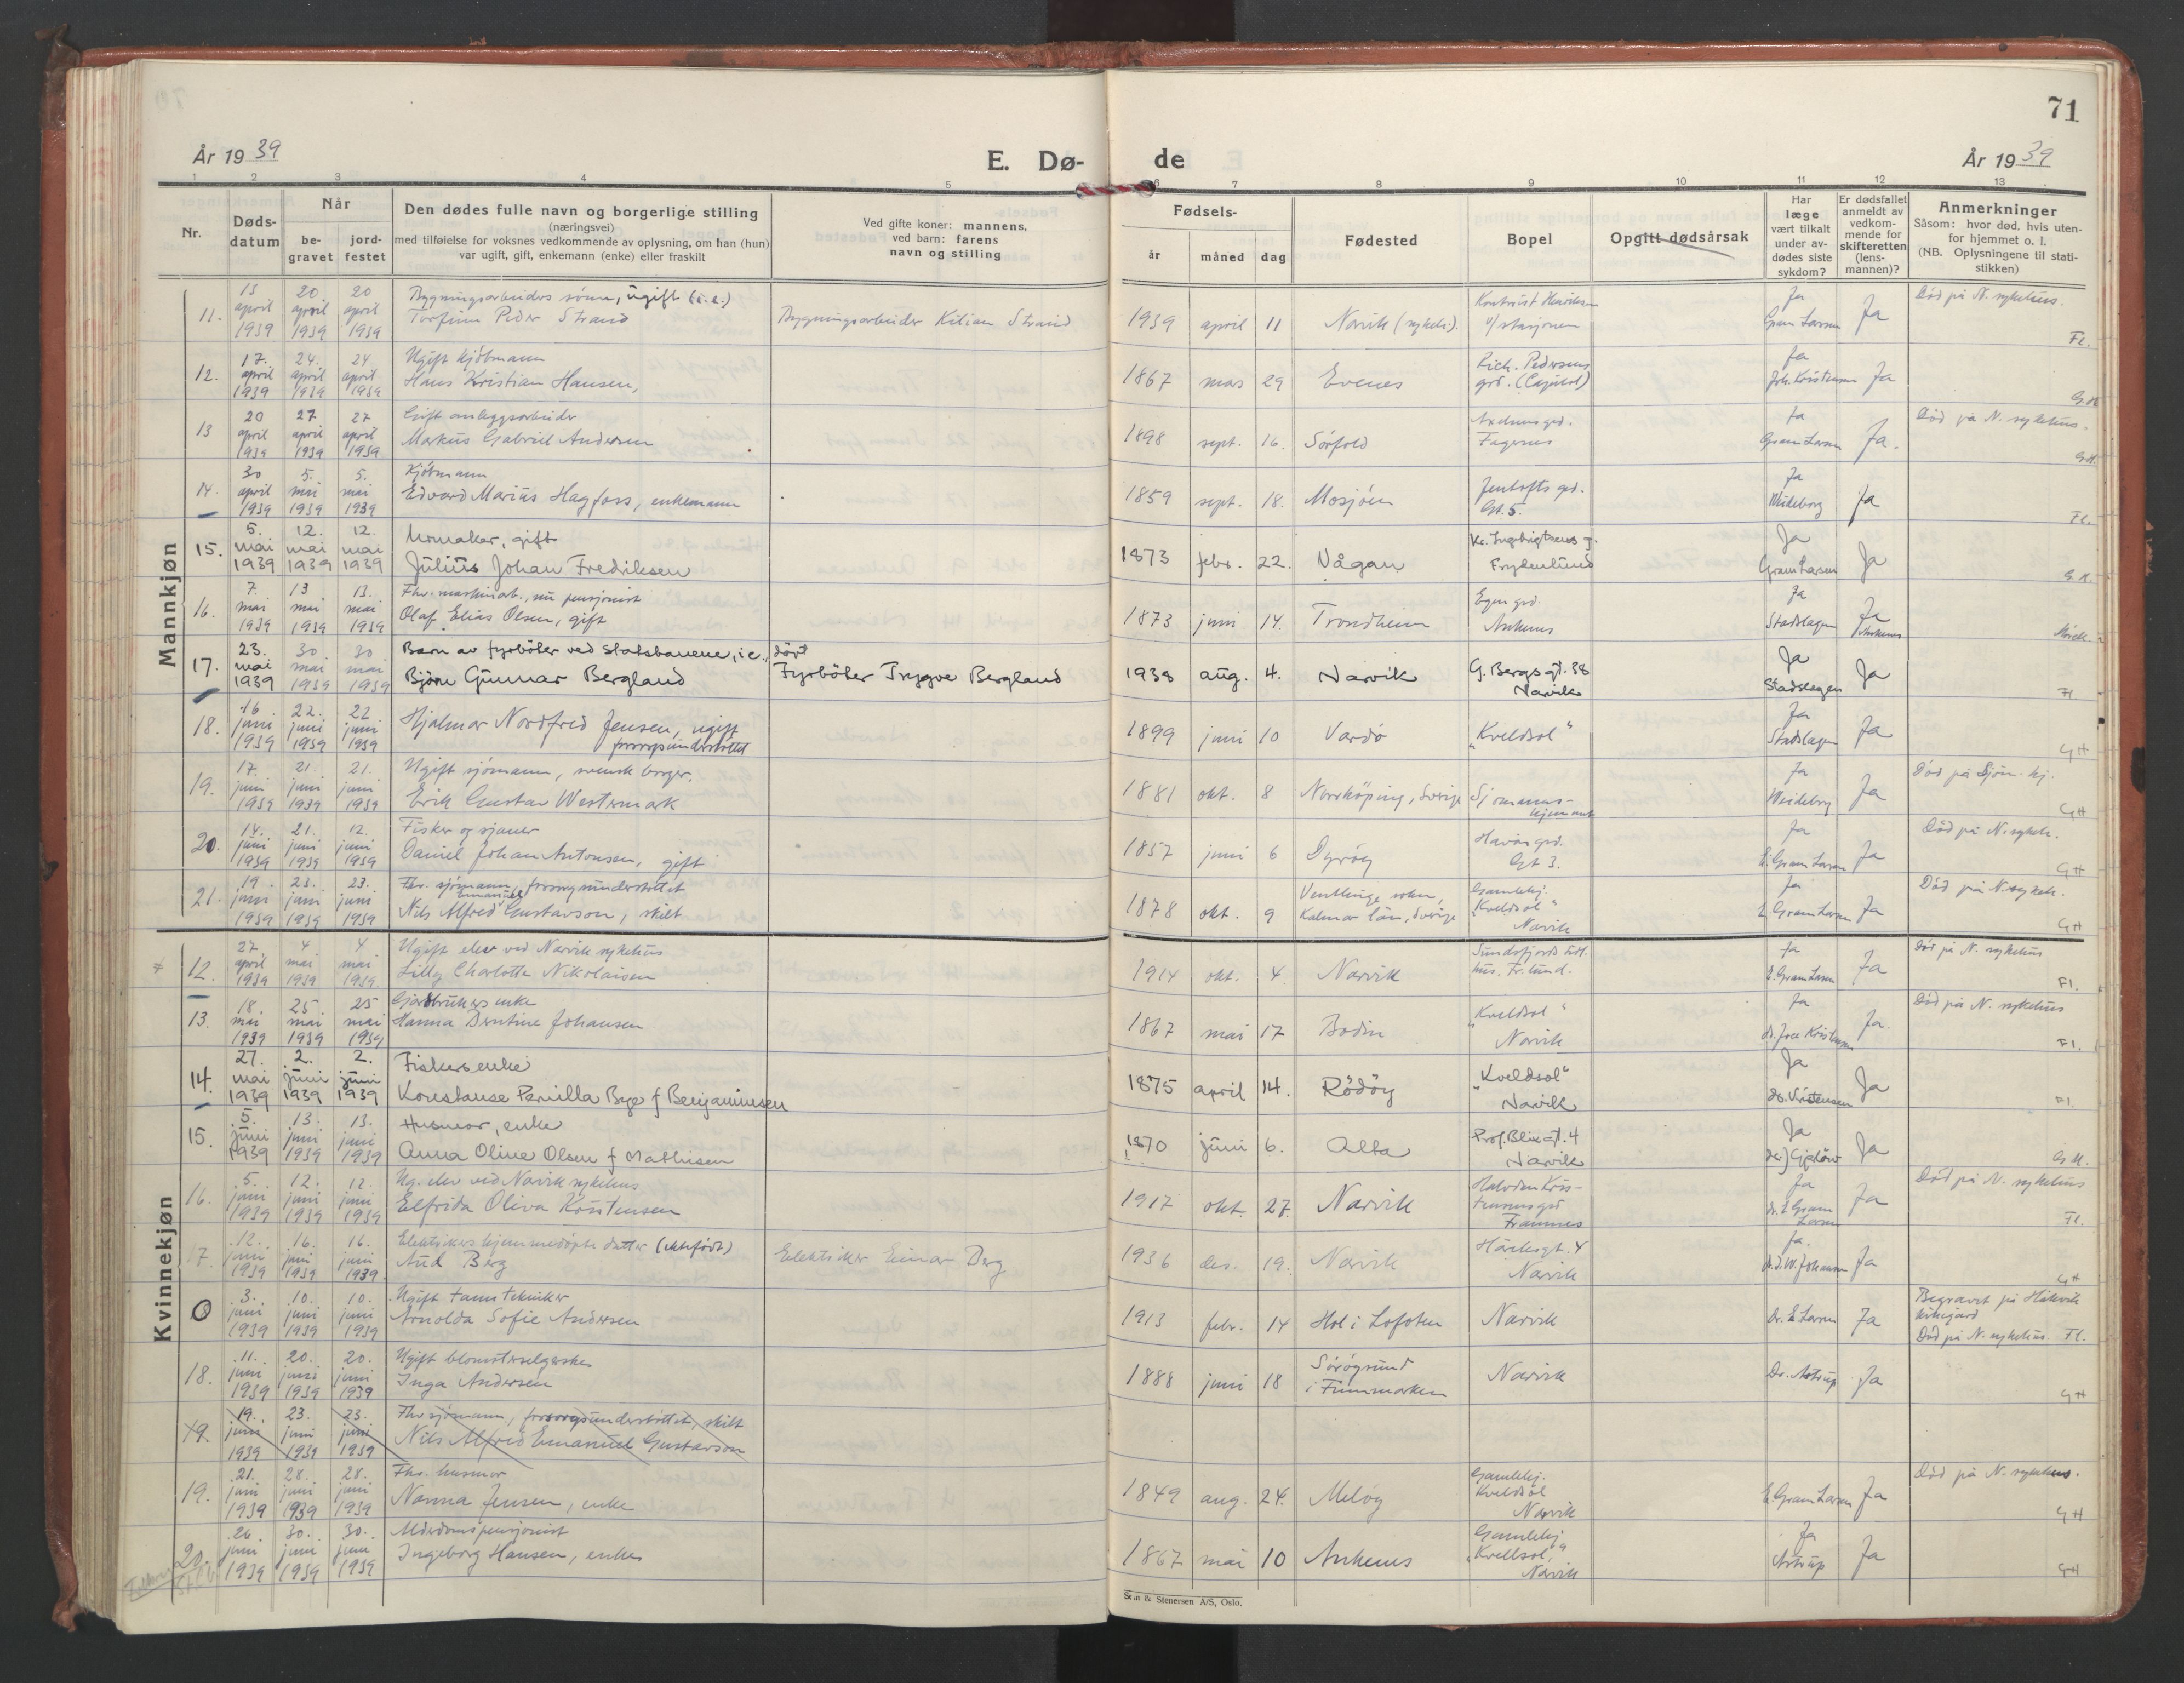 71
År 1939
E. Dø-
de
År 1939
1 2 3 4 5 6 7 8 9 10 11 12 13
Nr.
Døds-
datum
Når
be-
gravet
jord-
festet
Den dødes fulle navn og borgerlige stilling
(næringsvei)
med tilføielse for voksnes vedkommende av oplysning, om han (hun)
var ugift, gift, enkemann (enke) eller fraskilt
Ved gifte koner: mannens,
ved barn: farens
navn og stilling
Fødsels-
år måned dag
Fødested
Bopel
Opgitt dødsårsak
Har
læge
vært tilkalt
under av-
dødes siste
sykdom?
Er dødsfallet
anmeldt av
vedkom-
mende for
skifteretten
(lens-
mannen)?
Anmerkninger
Såsom: hvor død, hvis uten-
for hjemmet o. l.
(NB. Oplysningene til stati-
stikken)
Mannkjøn
11. april 1939 20 april 1939 20 april 1939
Bygningsarbeiders sønn, ugift
Torfinn Peder Strand
Bygningsarbeider Kilian Strand
1939 april 11 Narvik (sykeh.)
v/ stasjonen
Ja
Gram Larsen
Ja
Død på N. sykehus.
Fl.
12. 17. april 1939 24. april 1939 24 april 1939
Ugift kjøbmann
Hans Kristian Hansen,
1867 mars 29 Evenes
Rich. Pedersens
grd. (Capitol)
Ja
Joh. Kristensen
Ja
G.H
13 20 april 1939 27 april 1939 27 april 1939
Gift anleggsarbeider
Markus Gabriel Andersen
1898 sept. 16. Sörfold
Fagernes
Ja
Gram Larsen
Ja.
Død på N. sykehus.
G.H.
14. 30 april 1939 5. mai 1939 5. mai 1939
Kjöbmann
Edvard Marius Hagfoss, enkemann
1859 sept. 18. Mosjöen
Jentofts grd.
Gt. 5.
Ja
Wideborg
Ja
Fl.
15. 5. mai 1939 12. mai 1939 12. mai 1939
Urmaker, gift
Julius Johan Fredriksen
1873 febr. 22. Vågan
Kr. Ingebrigtsens g.
Frydenlund
Ja
Gram Larsen
Ja
G.H.
16. 7. mai 1939 13 mai 1939 13. mai 1939
Fhv. maskinarb., nu pensjonist
Olaf Elias Olsen, gift
1873 juni 14. Trondheim
Egen grd.
Ankenes
Ja
Stadslægen
Ja
Ankenes
17. 23. mai 1939 30 mai 1939 30 mai 1939
Barn av fyrböter ved Statsbanene, i.e., döpt
Björn Gunnar Bergland
Fyrböter Trygve Bergland
1938 aug. 4. Narvik
G. Bergs gt. 38
Narvik
Ja
Stadslægen
Ja
Fl
18. 16 juni 1939 22. juni 1939 22 juni 1939
Hjalmar Nordfred Jensen, ugift
forsorgsunderstöttet
1899 juni 10 Vardö
"Kveldsol"
Ja
Stadslægen
Ja
GH
19. 17. juni 1939 21. juni 1939 21. juni 1939
Ugift sjömann, svensk borger.
Erik Gustav Westermark
1881 okt. 8 Norrköping, Sverige
Sjömanns-
hjemmet
Ja
Wideborg
Ja
Død på Sjöm. hj.
GH
20. 14. juni 1939 21. juni 1939 12. juni 1939
Fisker og sjauer
Daniel Johan Antonsen, gift
1857 juni 6 Dyröy
Gt 3.
Ja
E. Gram Larsen
Ja
Død på N. sykeh.
GH
21. 19. juni 1939 23. juni 1939 23. juni 1939
Fhv. sjömann, forsorgsunderstöttet
Nils Alfred Emanuel Gustavson, skilt
1878 okt. 9
Ventlinge sokn,
Kalmar län, Sverige
Gamlehj.
"Kveldsol"
Narvik
Ja
E. Gram Larsen
Ja
Død på N. sykeh.
GH
Kvinnekjøn
12. 27 april 1939 4 mai 1939 4 mai 1939
Ugift elev ved Narvik sykehus
Lilly Charlotte Nikolaisen
1914 okt. 4. Narvik
hus. Fr.lund.
Ja
E. Gram Larsen
Ja
Død på N. sykehus
Fl.
13. 18. mai 1939 25 mai 1939 25 mai 1939
Gårdbrukers enke
Hanna Berntine Johansen
1867 mai 17 Bodin
"Kveldsol"
Narvik
Ja
Ja.
Død på N. sykehus
Fl.
14. 27. mai 1939 2. juni 1939 2. juni 1939
Fiskers enke
Konstanse Pernilla Bye f Benjaminsen
1875 april 14. Rödöy
"Kveldsol"
Narvik
Ja
dr. Kristensen
Ja
Fl.
15. 5. juni 1939 13. juni 1939 13. juni 1939
Husmor, enke
Anna Oline Olsen f Mathisen
1870 juni 6. Alta
Prof. Blix gt. 4
Narvik
Ja
Ja
G.H.
16. 5. juni 1939 12. juni 1939 12. juni 1939
Ug. elev ved Narvik sykehus
Elfrida Oliva Kristensen
1917 okt. 27. Narvik
Halvdan Kris-
tensens grd
Framnes
Ja
dr. E Gram
Larsen
Ja
Død på N. sykehus
Fl.
17. 12. juni 1939 16. juni 1939 16. juni 1939
Elektrikers hjemmedöpte datter (ektefödt)
Aud Berg
Elektriker Einar Berg
1936 des. 19. Narvik
Håreksgt. 4
Narvik
Ja.
Ja
GH
0 3. juni 1939 10. juni 1939 10. juni 1939
Ugift tanntekniker
Arnolda Sofie Andersen
1913 febr. 14 Hol i Lofoten
Narvik
dr. E Larsen
Ja
Begravet på Håkvik
kirkegård
Død på N. sykehus. Fl.
18. 11. juni 1939 20. juni 1939 20. juni 1939
Ugift blomsterselgerske
Inga Andersen
1888 juni 18
Söröysund
i Finnmarken
Narvik
Dr. Astrup
Ja
GH
19. 19. juni 1939 23. juni 1939 23. juni 1939
Fhv sjömann, forsorgsunderstöttet, skilt
Nils Alfred Emanuel Gustavson
19. 21. juni 1939 28. juni 1939 28. juni 1939
Fhv. husmor
Nanna Jensen, enke
1849 aug. 24. Melöy
Gamlehj.
Kveldsol
Narvik
E. Gram Larsen
Ja
Død på N. sykehus.
GH
20. 26 juni 1939 30. juni 1939 30. juni 1939
Alderdomspensjonist
Ingeborg Hansen, enke
1867 mai 10 Ankenes
Gamlehj.
"Kvellsol"
Narvik
Ja
Astrup
Ja
GH
& Stenersen A/S, Oslo.